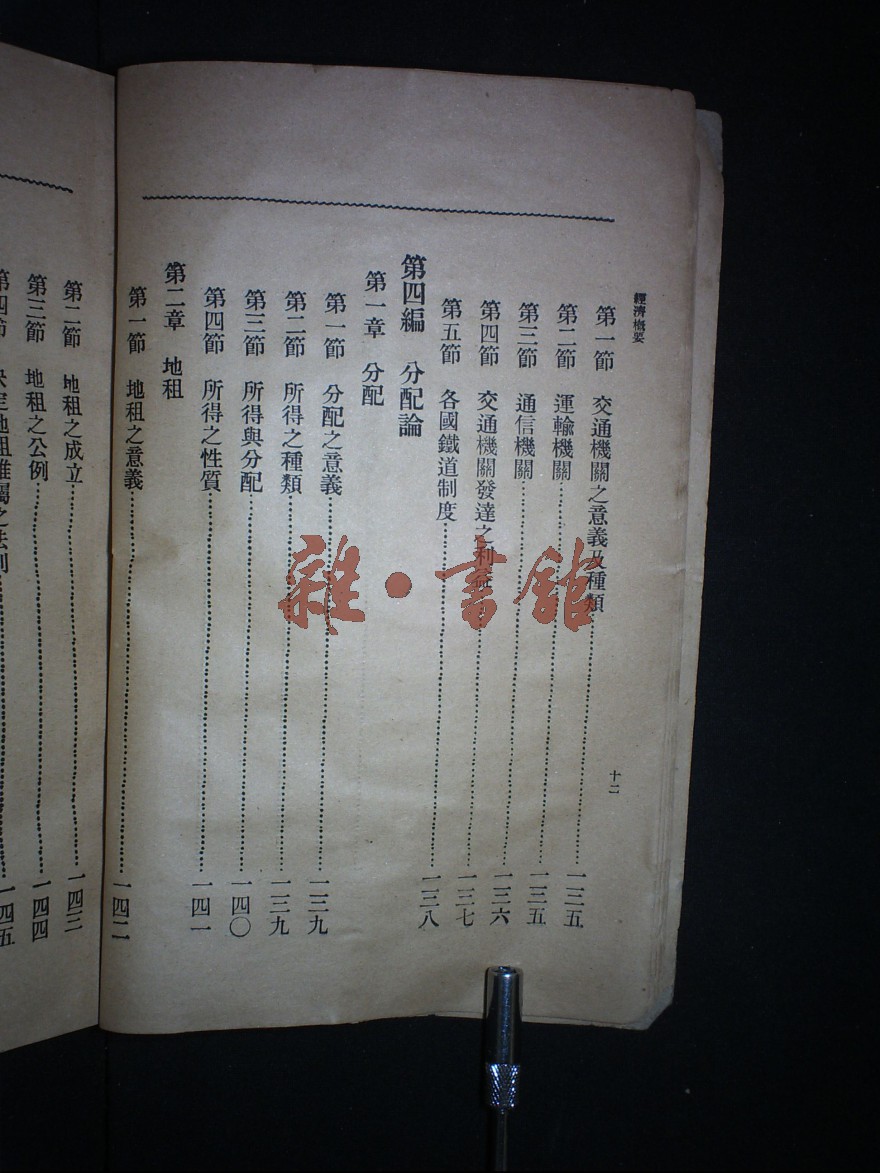 經濟概要
十二
第一節 交通機關之意義及種類……一三五
第二節 運輸機關……一三五
第三節 通信機關……一三六
第四節 交通機關發達之利益……一三七
第五節 各國鐵道制度……一三八
第四編 分配論
第一章 分配
第一節 分配之意義……一三九
第二節 所得之種類……一三九
第三節 所得與分配……一四〇
第四節 所得之性質……一四一
第二章 地租
第一節 地租之意義……一四二
第二節 地租之成立……一四三
第三節 地租之公例……一四四
第四節……一四五
雜·書館